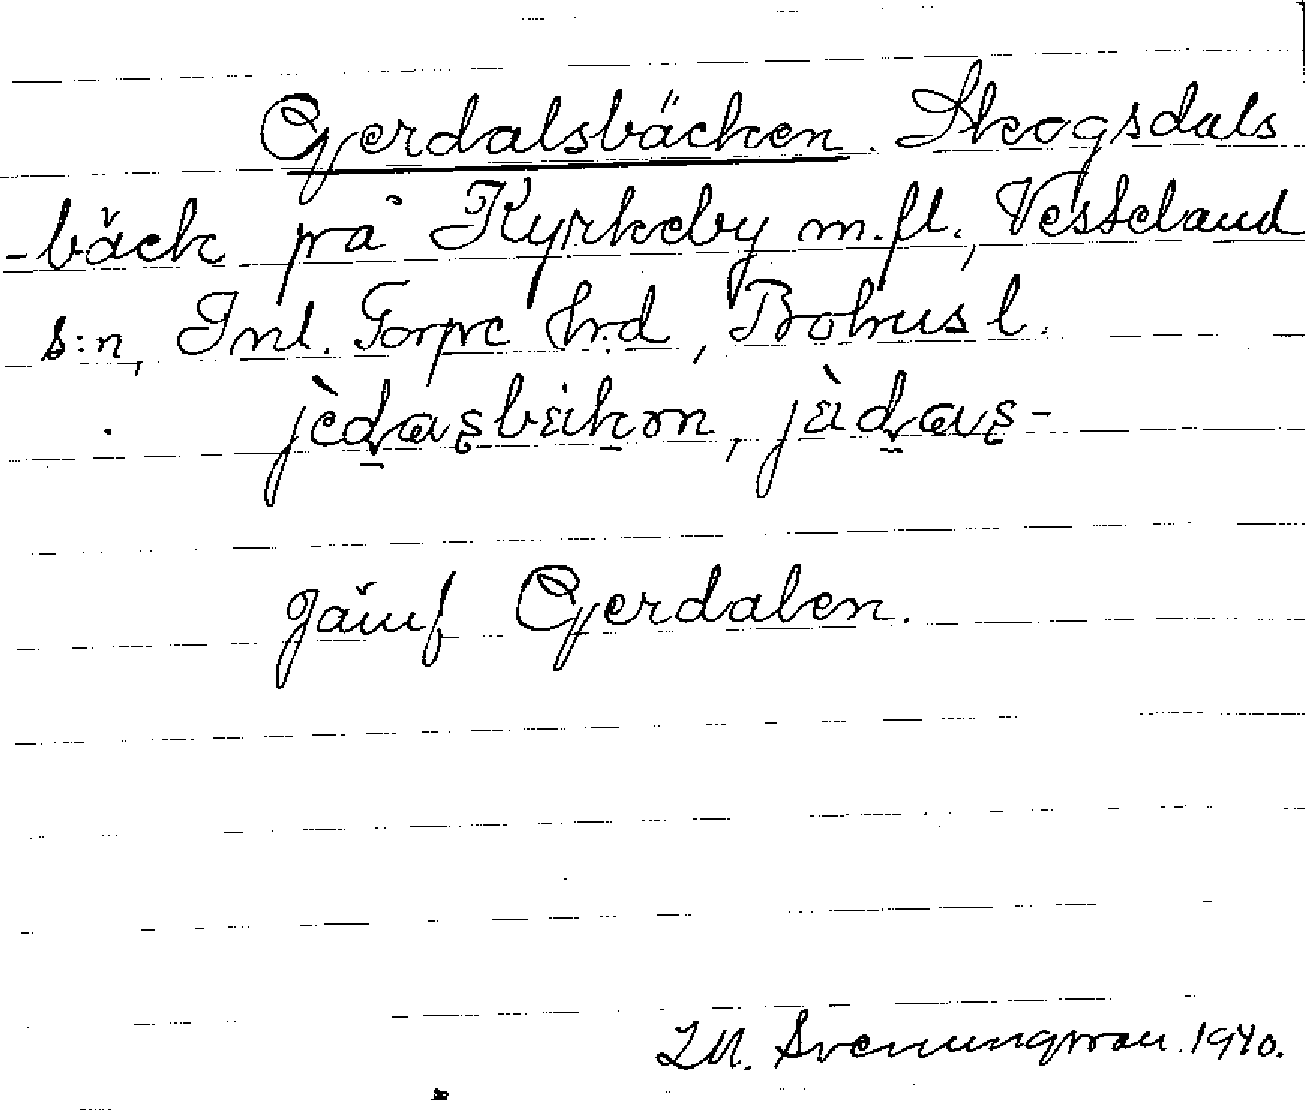 Gjerdalsbäcken. Skogsdals
-bäck på Kyrkeby m.fl., Vesseland
s:n, Inl. Torpe hrd, Bohusl.
jèḏaʂbäkən, jäḏaʂ-
jämf Gjerdalen.
Svenungsson. 1940.